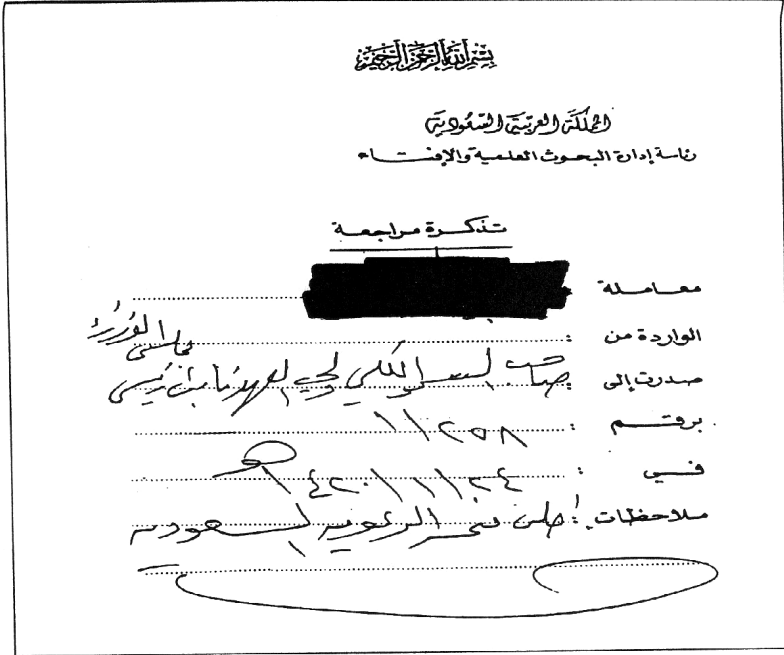 بسم الله الرحمن الرحيم
المملكة العربية السعودية
رئاسة إدارة البحوث العلمية والإفتاء
تذكرة مراجعة
معاملة
الواردة من :
مجلس الوزراء
صدرت إلى : صاحب السمو الملكي ولي العهد نائب رئيس
برقم : ١١٢٥٨
في : ١٤٢٠/١/٢٤ هـ
ملاحظات : السعودية